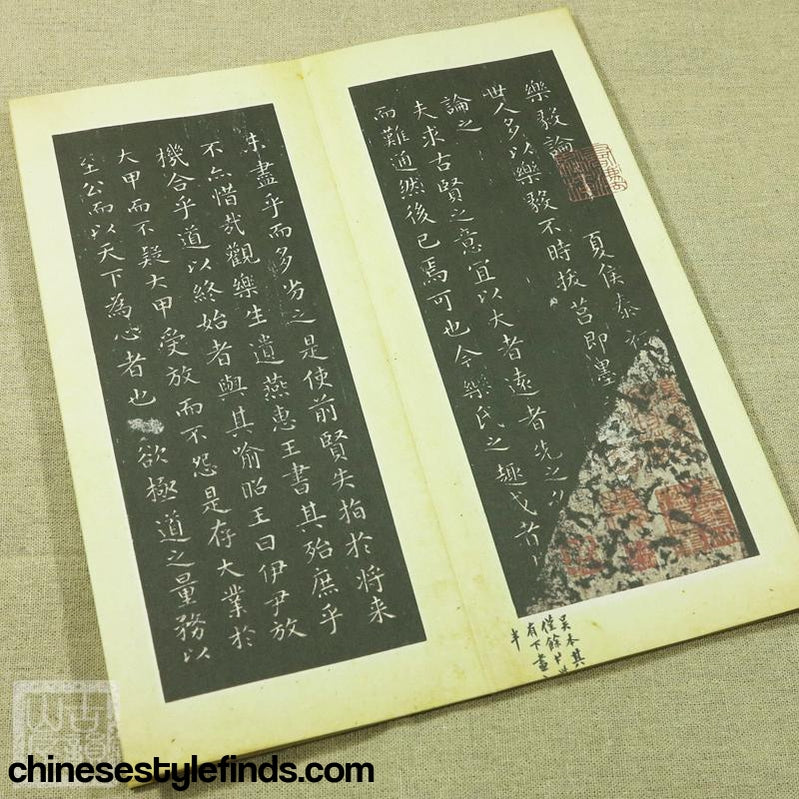 樂毅論 夏侯泰
世人多以樂毅不時拔莒即墨
論之
夫求古賢之意宜以大者遠者先之
而難通然後已焉可也今樂氏之趣或者
未盡乎而多劣之是使前賢失指於將来
不亦惜哉觀樂生遺燕惠王書其殆庶乎
機合乎道以終始者與其喻昭王曰伊尹放
大甲而不疑大甲受放而不怨是存大業於
至公而以天下為心者也欲極道之量務以
吴本其
僅餘
有下畫
半
chinesestylefinds.com